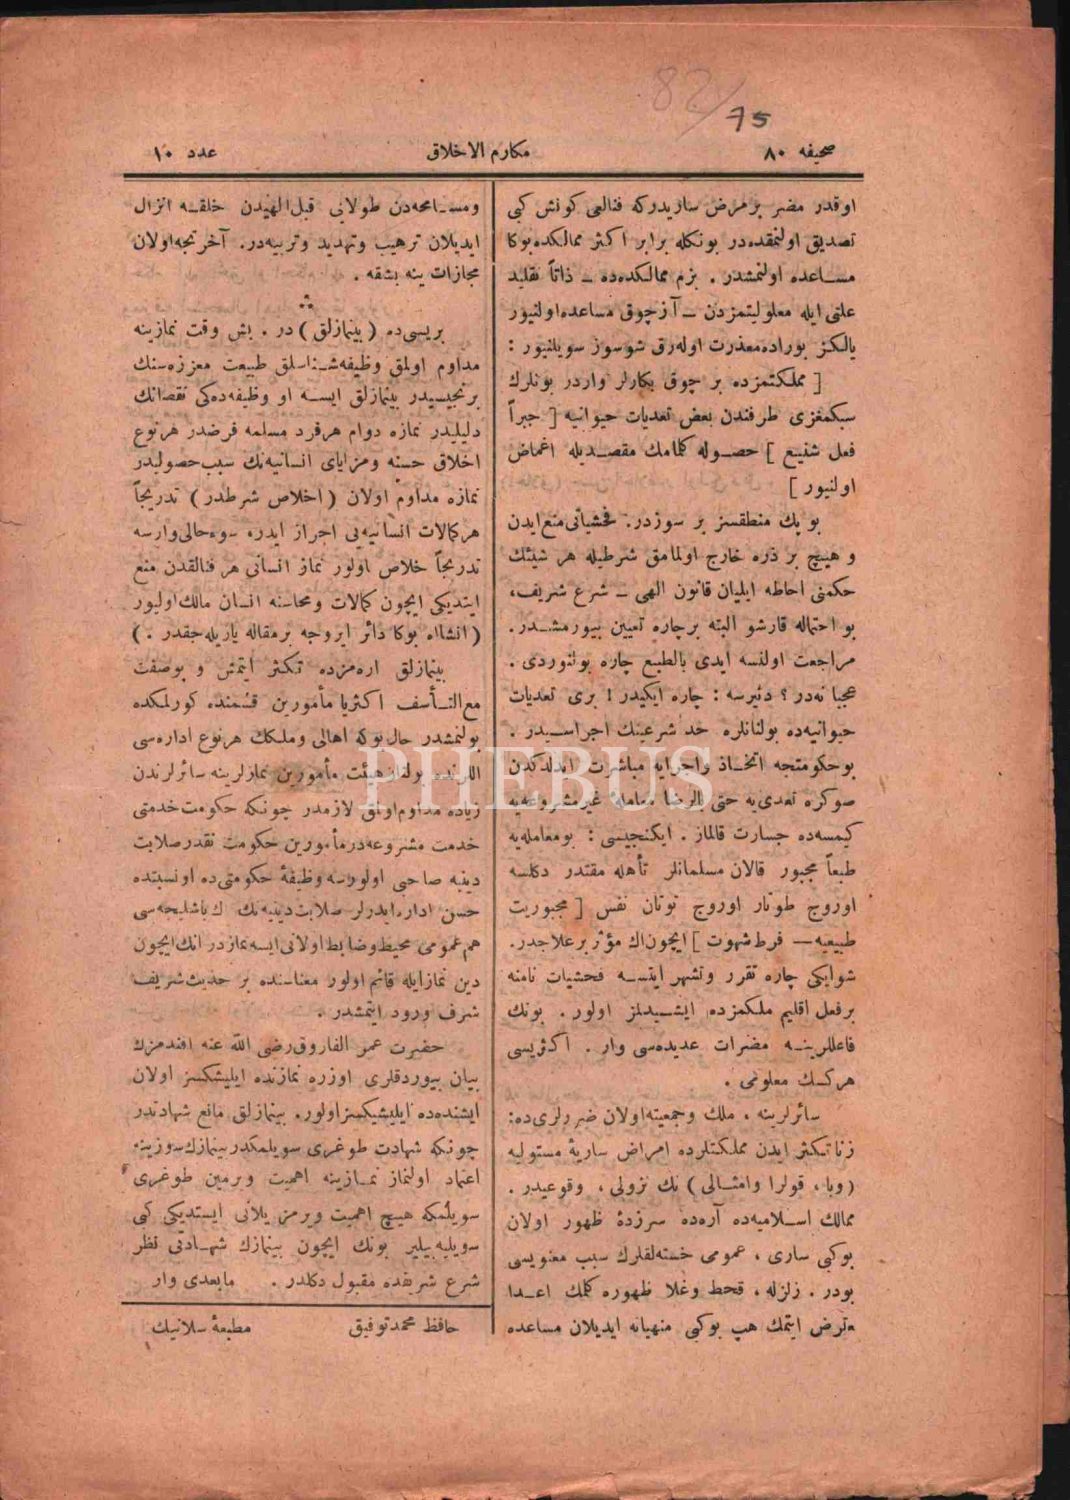 82/75
صحیفه ۸۰
مکارم الاخلاق
عدد ۱۰
اوقدر مضر بر مرض ساریدرکه فنالغی کونش کبی
تصدیق اولنمقده در بونکله برابر اکثر ممالکده بوکا
مساعده اولنمشدر . بزم ممالکده ده ــ ذاتاً تقلید
علتی ایله معلولیتمزدن ــ آز چوق مساعده اولنیور
یالکز بوراده معذرت اوله رق شو سوز سویلنیور :
[ مملکتمزده بر چوق بکارلر واردر بونلرك
سبکمغزی طرفندن بعض تعدیات حیوانیه [ جبراً
فعل شنیع ] حصوله کلمامك مقصدیله اغماض
اولنیور ]
بو پك منطقسز بر سوزدر . فحشیاتی منع ایدن
و هیچ بر ذره خارج اولمامق شرطیله هر شیئك
حکمنی احاطه ایلیان قانون الهی ــ شرع شریف ،
بو احتماله قارشو البته بر چاره تعیین بیورمشدر .
مراجعت اولنسه ایدی بالطبع چاره بولنوردی .
عجبا نه در ؟ دنیرسه : چاره ایکیدر ! بری تعدیات
حیوانیه ده بولنانلره حد شرعینك اجراسیدر .
بو حکومتجه اتخاذ واجرایه مباشرت ایدلدکدن
صوکره تعدی یه حتی بالرضا معامله غیر مشروعه یه
کیمسه ده جسارت قالماز . ایکنجیسی : بو معامله یه
طبعاً مجبور قالان مسلمانلر تأهله مقتدر دکلسه
اوروج طوتار اوروج توتان نفس [ مجبوریت
طبیعیه — فرط شهوت ] ایچون اك مؤثر بر علاجدر .
شو ایکی چاره تقرر وتشهر ایتسه فحشیات نامنه
بر فعل اقلیم ملکمزده ایشیدلمز اولور . بونك
فاعللرینه مضرات عدیده سی وار . اکثریسی
هرکسك معلومی .
سائرلرینه ، ملك وجمعیته اولان ضررلری ده :
زنا تکثر ایدن مملکتلرده امراض ساریهٔ مستولیه
(وبا ، قولرا وامثالی ) نك نزولی ، وقوعیدر .
ممالك اسلامیه ده آره ده سرزدهٔ ظهور اولان
بوکبی ساری ، عمومی خسته لقلرك سبب معنویسی
بودر . زلزله ، قحط وغلا ظهوره کلمك اعدا
تعرض ایتمك هپ بوکبی منهیاته ایدیلان مساعده
ومسامحه دن طولایی قبل الهیدن خلقه انزال
ایدیلان ترهیب وتهدید وتربیه در . آخرتجه اولان
مجازات ینه بشقه .
بریسی ده (بینمازلق ) در . بش وقت نمازینه
مداوم اولمق وظیفه شناسلق طبیعت معززه سنك
برنجیسیدر بینمازلق ایسه او وظیفه ده کی نقصانك
دلیلیدر نمازه دوام هر فرد مسلمه فرضدر هر نوع
اخلاق حسنه ومزایای انسانیه نك سبب حصولیدر
نمازه مداوم اولان (اخلاص شرطدر ) تدریجاً
هر کمالات انسانیه یی احراز ایدر ، سوء حالی وارسه
تدریجاً خلاص اولور نماز انسانی هر فنالقدن منع
ایتدیکی ایچون کمالات ومحاسنه انسان مالك اولیور
(انشاالله بوکا دائر ایروجه بر مقاله یازیله جقدر . )
بینمازلق اره مزده تکثر ایتمش و بو صفت
مع التأسف اکثریا مأمورین قسمنده کورلمکده
بولنمشدر حال بوکه اهالی وملکك هر نوع اداره سی
اللرنده بولنان هیئت مأمورین نمازلرینه سائرلرندن
زیاده مداوم اولمق لازمدر چونکه حکومت خدمتی
خدمت مشروعه در مأمورین حکومت نقدر صلابت
دینیه صاحبی اولورسه وظیفهٔ حکومتی ده او نسبتده
حسن اداره ایدرلر صلابت دینیه نك اك باشلیجه سی
هم عمومی محیط وضابط اولانی ایسه نمازدر انك ایچون
دین نماز ایله قائم اولور معناسنده بر حدیث شریف
شرف ورود ایتمشدر .
حضرت عمر الفاروق رضی الله عنه افندمزك
بیان بیوردقلری اوزره نمازنده ایلیشکسز اولان
ایشنده ده ایلیشیکسز اولور . بینمازلق مانع شهادتدر
چونکه شهادت طوغری سویلمکدر بینمازك سوزینه
اعتماد اولنماز نمازینه اهمیت ویرمین طوغری
سویلمکه هیچ اهمیت ویرمز یلانی ایستدیکی کبی
سویلیه بیلیر بونك ایچون بینمازك شهادتی نظر
شرع شریفده مقبول دکلدر . مابعدی وار
حافظ محمد توفیق
مطبعهٔ سلانیك
PHEBUS